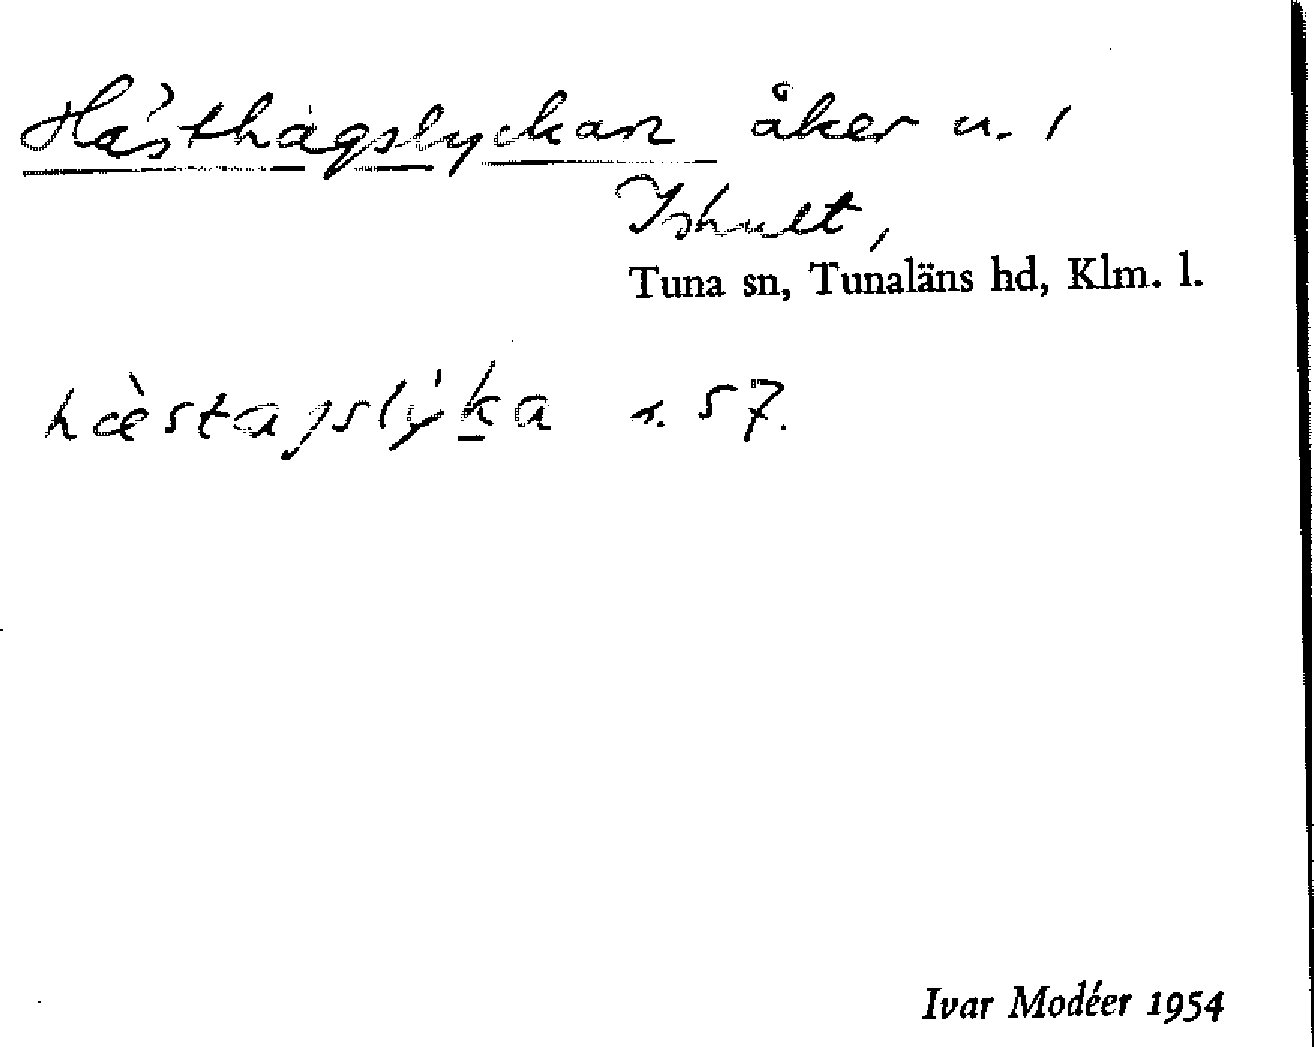 Hästhagslyckan åker u. 1
Ishult,
Tuna sn, Tunaläns hd, Klm. l.
hæ̀stagslýka s. 57.
Ivar Modéer 1954